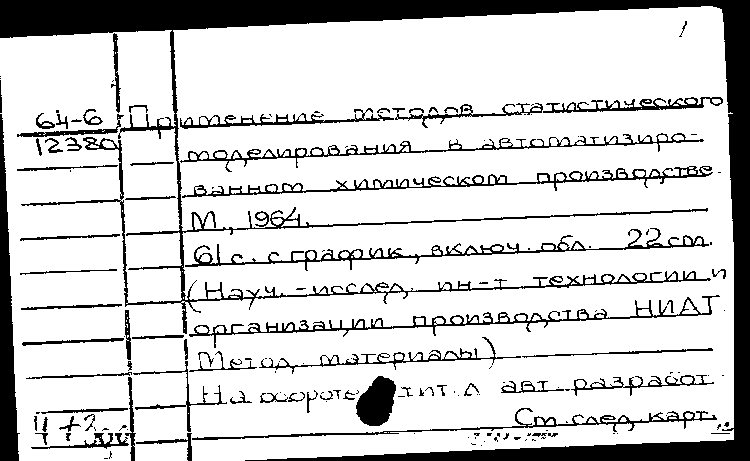 1
64-6 Применение методов статистического
12380 моделирования в автоматизиро-
ванном химическом производстве.
М., 1964.
61 с. с график., включ. обл. 22 см.
(Науч.-исслед. ин-т технологии и
организации производства НИАТ.
Метод. материалы)
На обороте тит. л. авт. разработ.
См. след. карт.